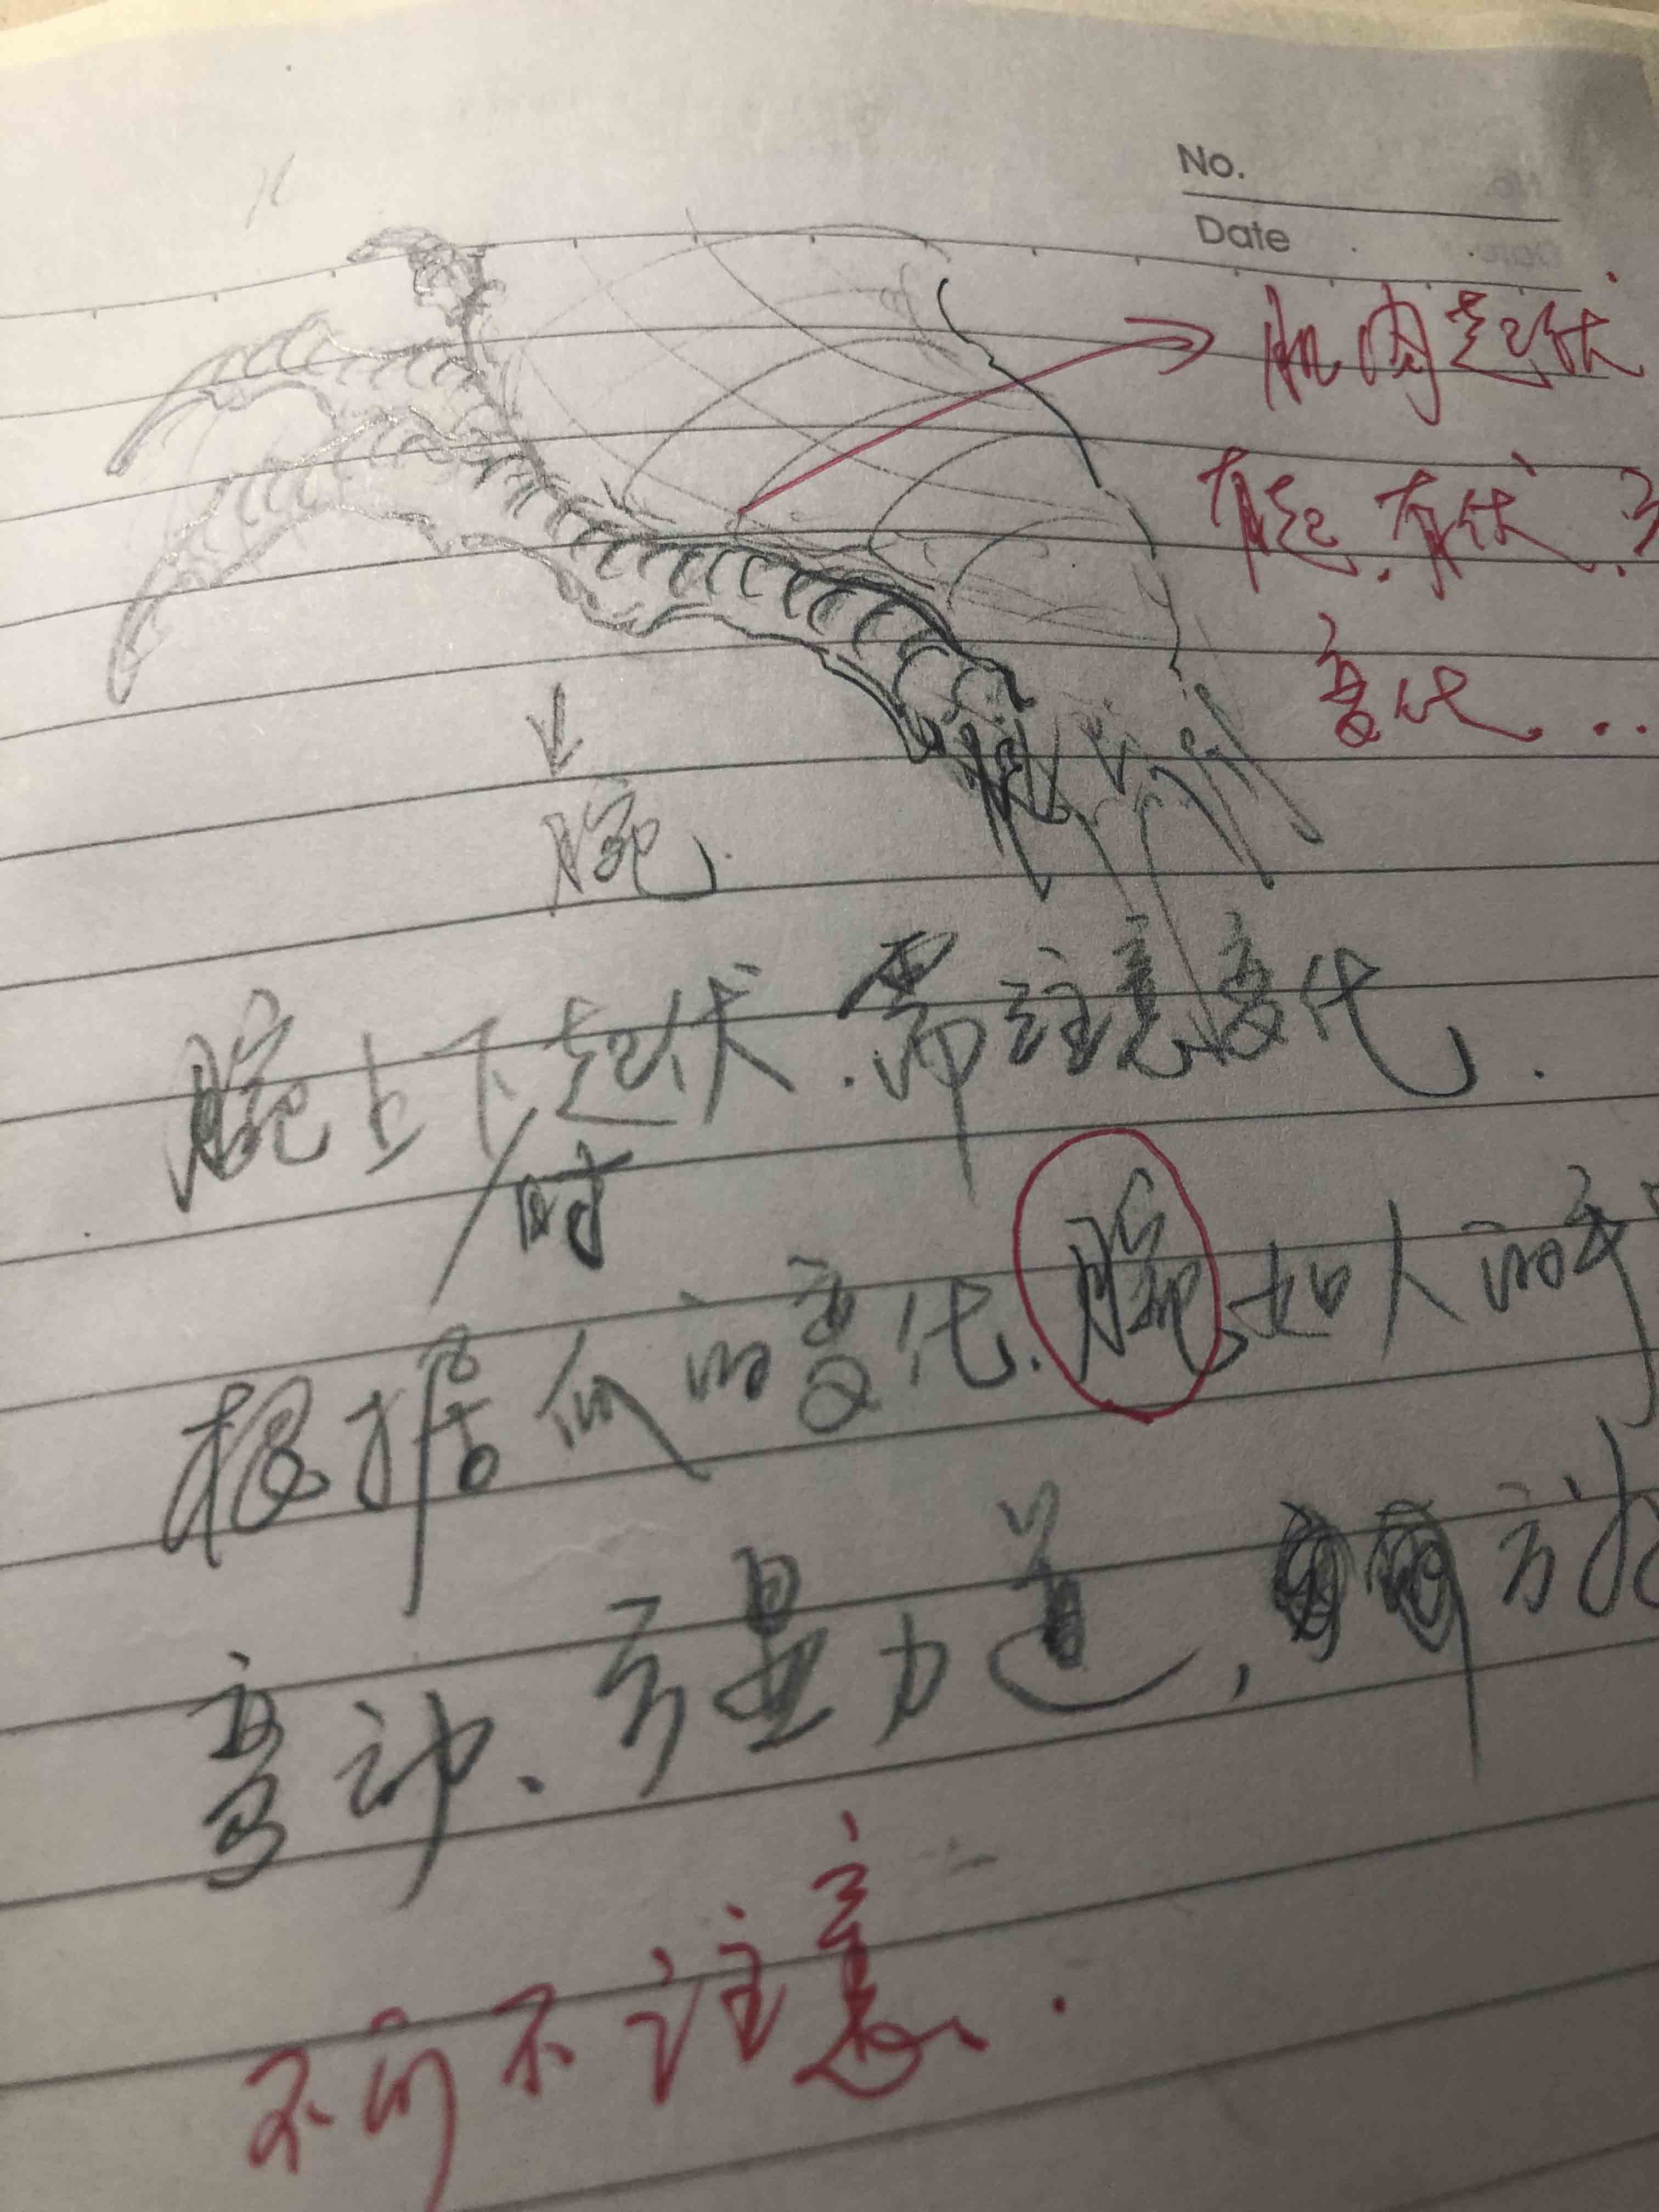 No.
Date
肌肉起伏
有起.有伏.
变化...
腕
腕上下起伏.需注意变化.
时
根据爪的变化.腕如人的
弯动、力道,方
不可不注意.